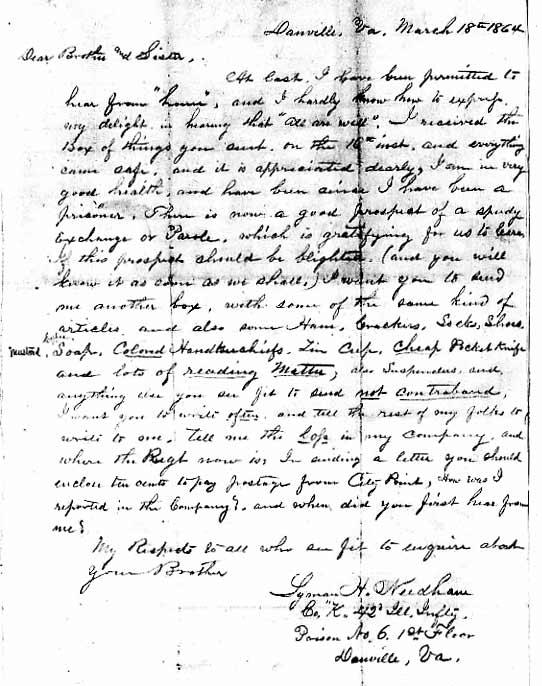 Danville, Va. March 18th 1864
Dear Brother and Sister,
At last, I have been permitted to
hear from "home", and I hardly know how to express
my delight in hearing that "all are well". I received the
Box of things you sent on the 16th inst. and everything
came safe, and it is appreciated dearly, I am in very
good health, and have been since I have been a
prisoner. There is now a good prospect of a speedy
Exchange or Parole, which is gratifying for us to learn,
If this prospect should be blighted, (and you will
know it as soon as we shall,) I want you to send
me another box, with some of the same kind of
articles, and also some Ham, Crackers, Socks, Shoes,
mustard, Soap, Colored Handkerchiefs, Tin Cup, Cheap Pocket Knife
and lots of reading Matter, also Suspenders, and,
anything else you see fit to send not contraband,
I want you to write often, and tell the rest of my folks to
write to me. Tell me the Loss in my company, and
where the Regt now is, In sending a letter you should
enclose ten cents to pay postage from City Point, How was I
reported in the Company? and when did you first hear from
me?
My Respects to all who see fit to enquire about
Your Brother
Lyman H. Needham
Co, "K. 42d Ill. Infty.
Prison No. 6. 1st Floor
Danville, Va.